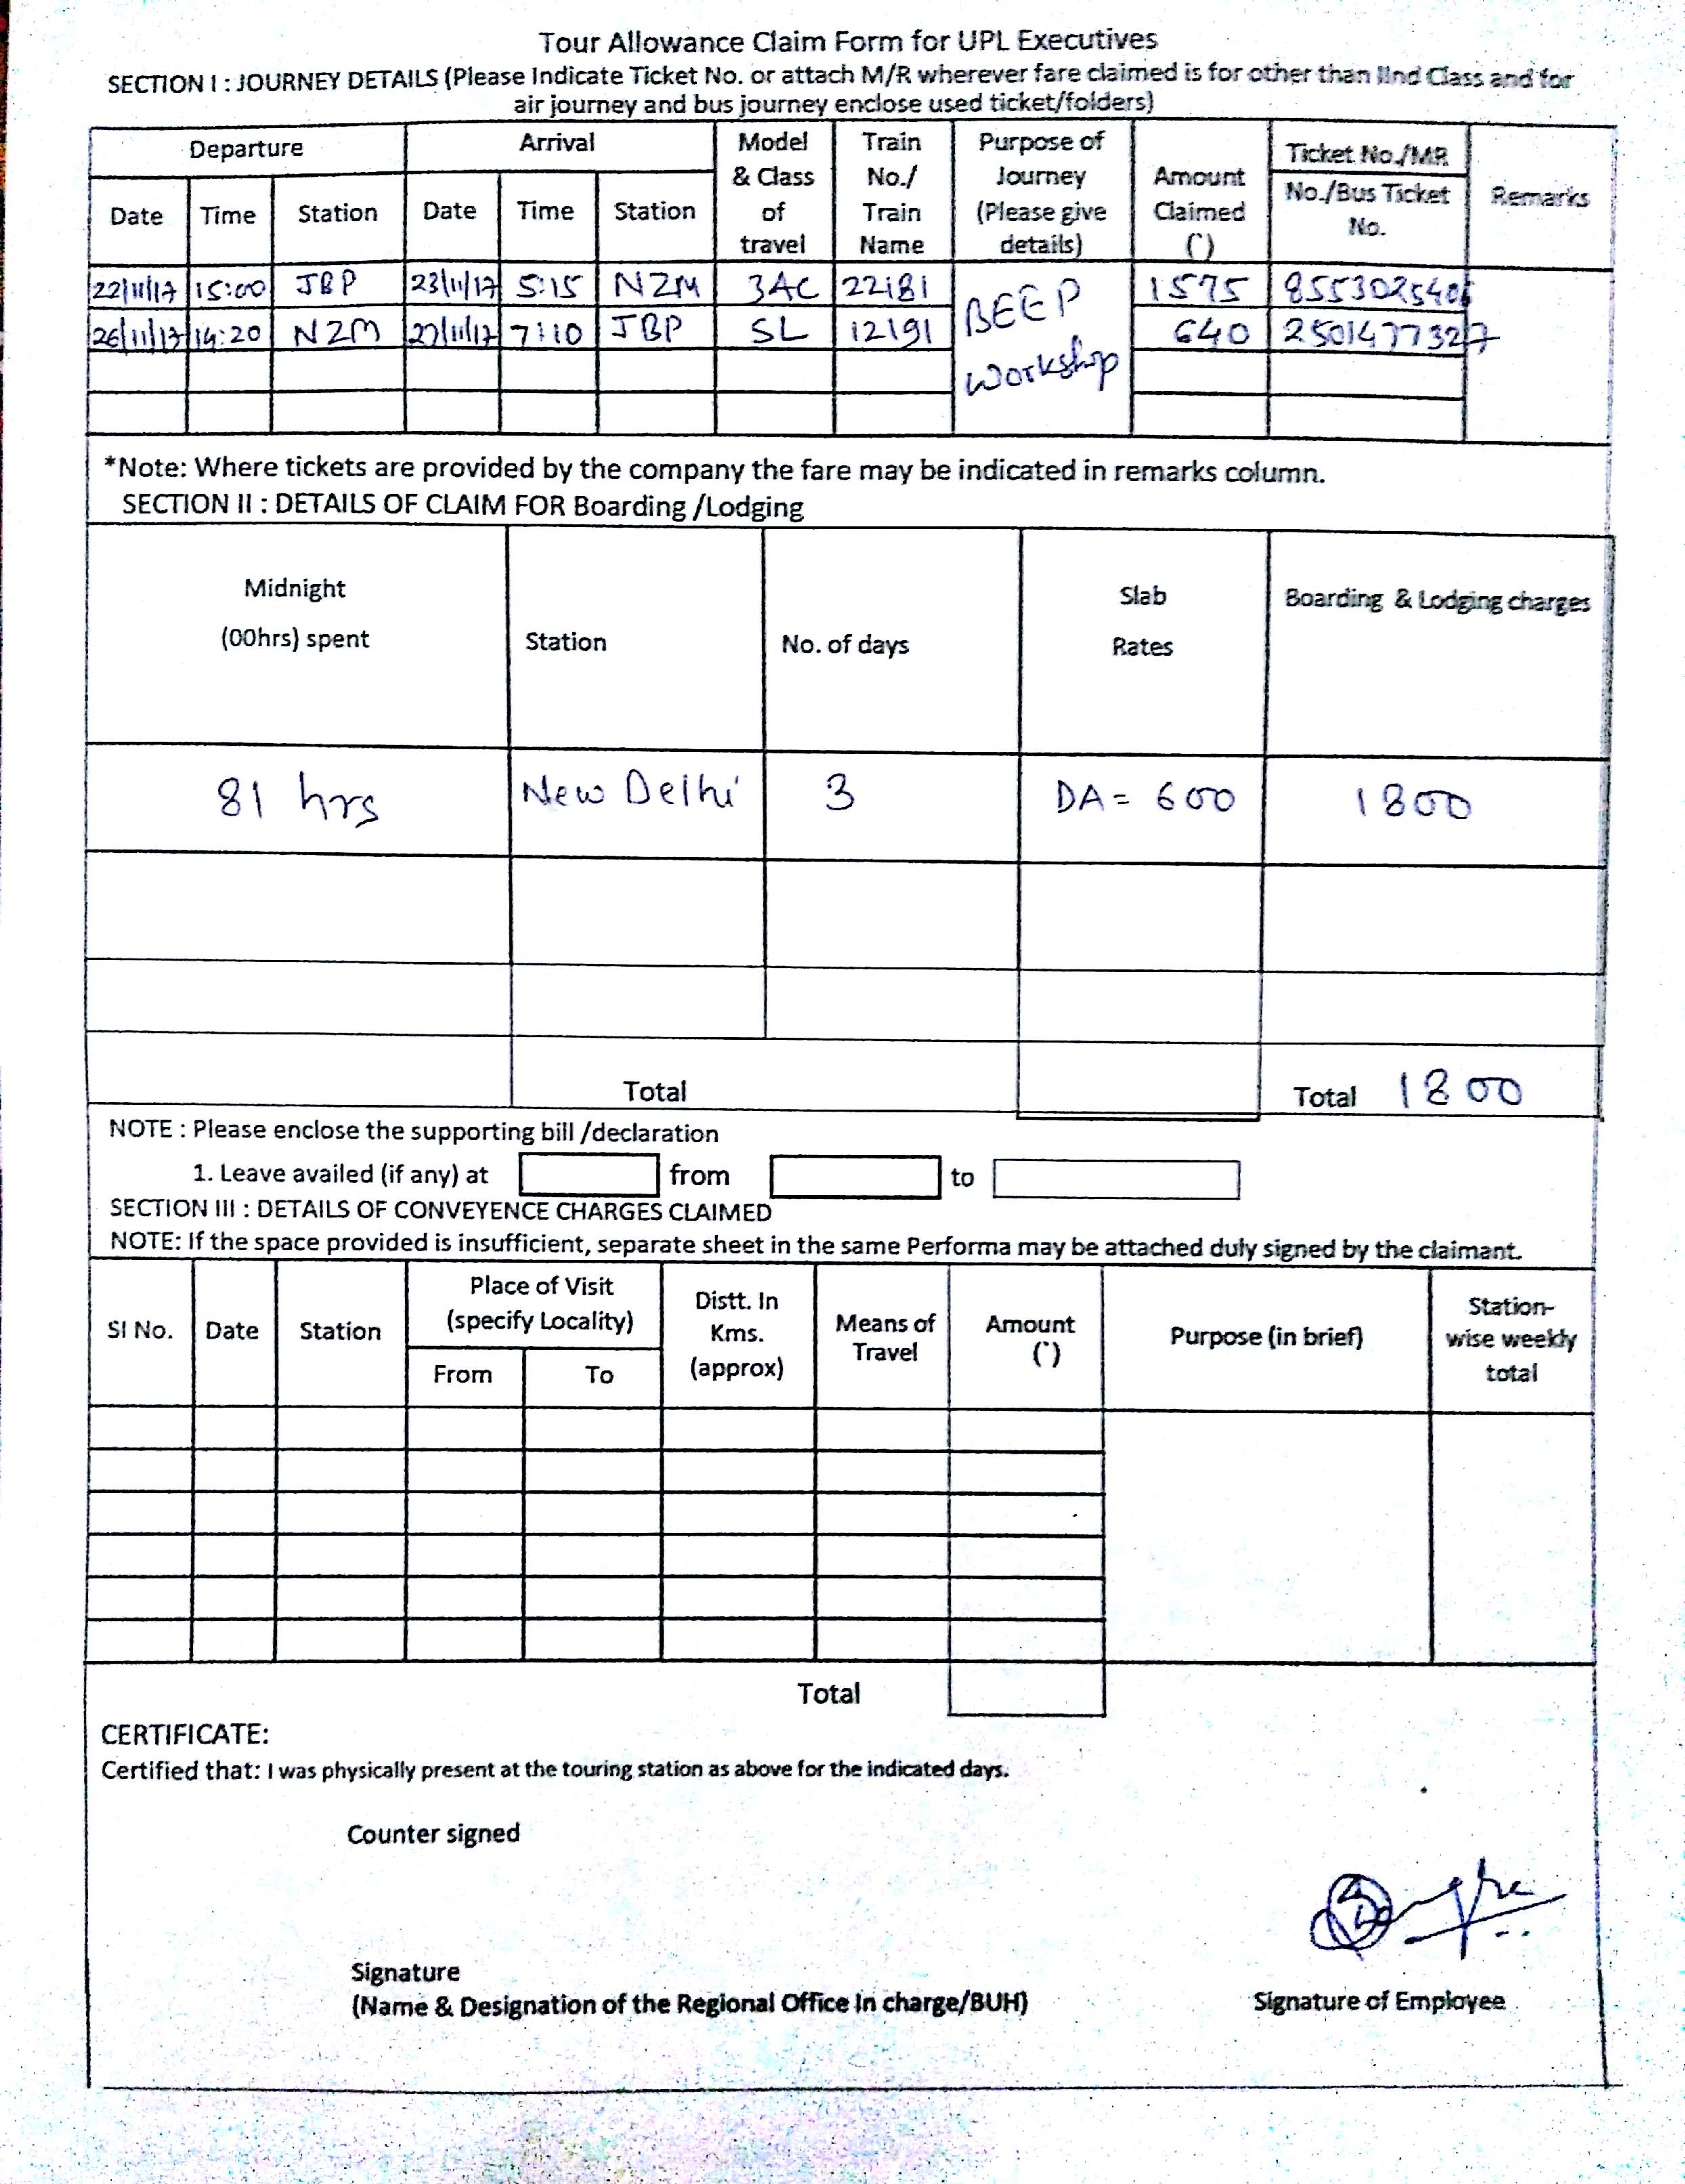 Tour Allowance Claim Form for UPL Executives
SECTION I : JOURNEY DETAILS (Please Indicate Ticket No. or attach M/R wherever fare claimed is for other than IInd Class and for
air journey and bus journey enclose used ticket/folders)
Departure Arrival Model & Class of travel Train No./ Train Name Purpose of Journey (Please give details) Amount Claimed (`) Ticket No./MR No./Bus Ticket No. Remarks
Date Time Station Date Time Station
22/11/17 15:00 JBP 23/11/17 5:15 NZM 3AC 22181 BEEP 1575
26/11/17 14:20 NZM 27/11/17 7:10 JBP SL 12191 Workshop 640 2501477327
*Note: Where tickets are provided by the company the fare may be indicated in remarks column.
SECTION II : DETAILS OF CLAIM FOR Boarding /Lodging
Midnight (00hrs) spent Station No. of days Slab Rates Boarding & Lodging charges
81 hrs New Delhi 3 DA = 600 1800
Total Total 1800
NOTE : Please enclose the supporting bill /declaration
1. Leave availed (if any) at from to
SECTION III : DETAILS OF CONVEYENCE CHARGES CLAIMED
NOTE: If the space provided is insufficient, separate sheet in the same Performa may be attached duly signed by the claimant.
SI No. Date Station Place of Visit (specify Locality) Distt. In Kms. (approx) Means of Travel Amount (`) Purpose (in brief) Station-wise weekly total
From To
Total
CERTIFICATE:
Certified that: I was physically present at the touring station as above for the indicated days.
Counter signed
Signature
(Name & Designation of the Regional Office In charge/BUH)
Signature of Employee